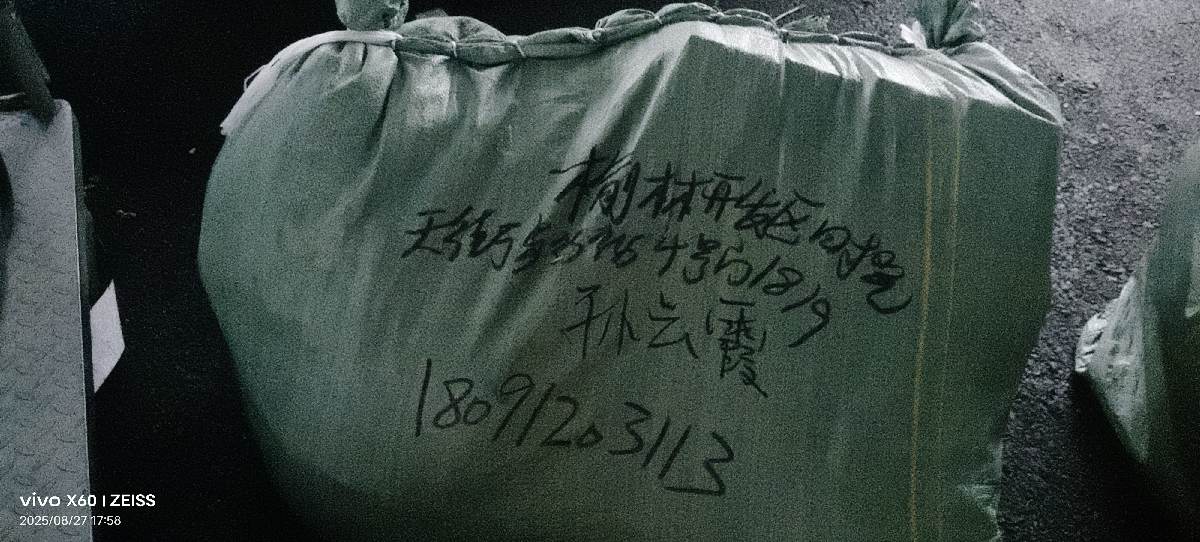 榆林开发区
天街 4号 1819
孙云霞
18091203113
vivo X60 | ZEISS
2025/08/27 17:58